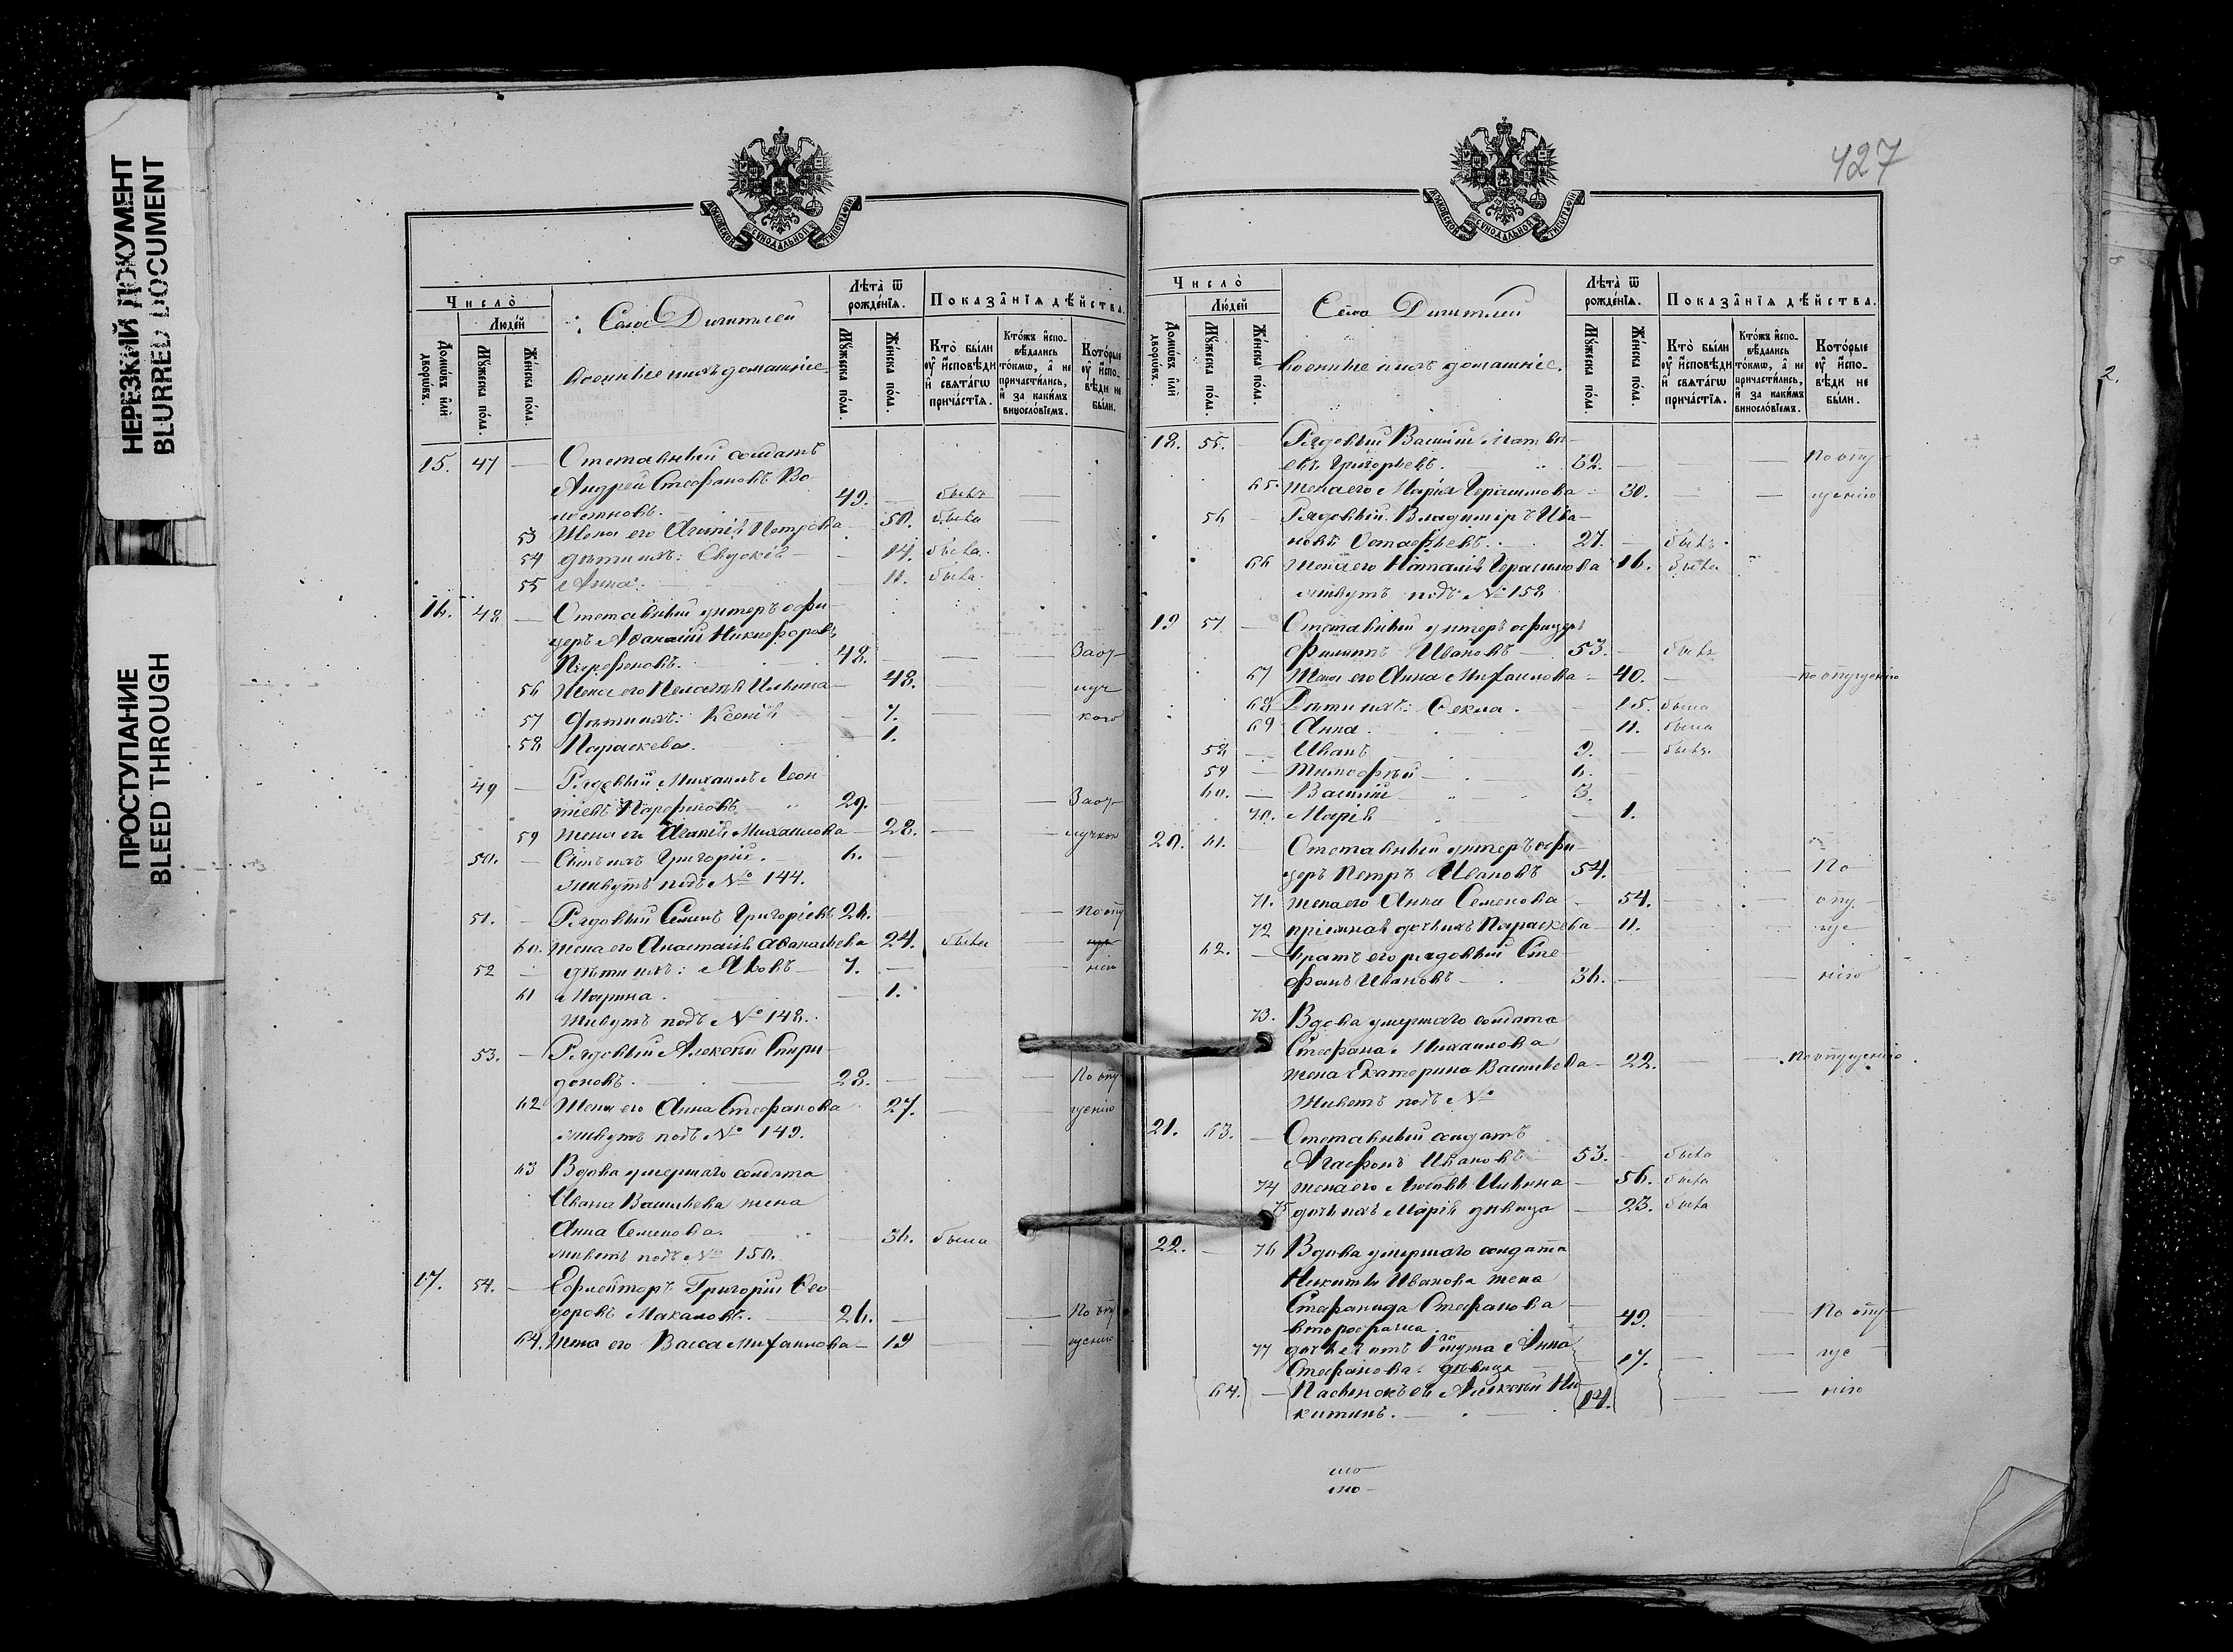 НЕРЕЗКИЙ ДОКУМЕНТ
BLURRED DOCUMENT
ПРОСТУПАНИЕ
BLEED THROUGH
МОСКОВСКОЙ СѴНОДАЛЬНОЙ ТИПОГРАФІИ
Число̀
Людéй
Домѡ́въ и҆лѝ дворѡ́въ.
Мꙋ́жеска по́ла.
Же́нска по́ла.
Село Дигитлей
Военные и ихъ домашніе.
Лѣ́та ѿ рожде́нїѧ.
Мꙋ́жеска по́ла.
Же́нска по́ла.
Показа̂нїѧ дѣ́йства.
Кто̀ бы́ли оу҆ и҆сповѣ́ди и҆ свѧта́гѡ прича́стїѧ.
Кто́жъ и҆спо-вѣ́дались то́кмѡ, а҆ не причасти́лись, и҆ за каки́мъ винослоⷡ҇їемъ.
Кото́рые оу҆ и҆спо-вѣ́ди не бы́ли.
15. 47 — Отставный солдатъ
Андрей Стефановъ
49. — былъ
53 Жена его Агапія Петрова — 50. была
54 дѣти ихъ: Евдокія — 14. была
55 Анна. 11. была
16. 48 — Отставный унтеръ офи-
церъ Аѳанасій Никифоровъ
Парфеновъ. 48. — Заот-
56 Жена его Пелагія Ильина — 48. луч
57 дѣти ихъ: Ксенія — 7. кою
58 Параскева. — 1.
49 — Рядовый Михаилъ Леон
тіевъ Парфеновъ 29. — Заот-
59 Жена его Агапія Михаилова — 28. лучкою
50. — Сынъ ихъ Григорій. 6. —
живутъ подъ № 144.
51. — Рядовый Семенъ Григоріевъ 26. — По опу
60. Жена его Анастасія Аѳанасьева 24. была — ще
52 — дѣти ихъ: Яковъ — 7. — нію
61 Марина. — 1.
Живутъ подъ № 148.
53. — Рядовый Алексѣй Спири-
доновъ. — 28. — По опу
62 Жена его Анна Стефанова 27. — щенію
живутъ подъ № 149.
63 Вдова умершаго солдата
Ивана Васильева жена
Анна Семенова. 36. была
живетъ подъ № 150.
17. 54. — Ефрейторъ Григорій Ѳео
доровъ Макаловъ. 26. — По опу
64. Жена его Васса Михаилова — 19 — щенію
427
МОСКОВСКОЙ СѴНОДАЛЬНОЙ ТИПОГРАФІИ
Число̀
Людéй
Домѡ́въ и҆лѝ дворѡ́въ.
Мꙋ́жеска по́ла.
Же́нска по́ла.
Село Дигитлей
Военные и ихъ домашніе.
Лѣ́та ѿ рожде́нїѧ.
Мꙋ́жеска по́ла.
Же́нска по́ла.
Показа̂нїѧ дѣ́йства.
Кто̀ бы́ли оу҆ и҆сповѣ́ди и҆ свѧта́гѡ прича́стїѧ.
Кто́жъ и҆спо-вѣ́дались то́кмѡ, а҆ не причасти́лись, и҆ за каки́мъ винослоⷡ҇їемъ.
Кото́рые оу҆ и҆спо-вѣ́ди не бы́ли.
18. 55. — Рядовый Василій Матвѣ-
евъ Григорьевъ. — По опу
65. Жена его Марія Герасимова — 30. — щенію
56 — Рядовый Владиміръ Ива-
новъ Остафьевъ. 27. — былъ.
66 Жена его Наталія Герасимова 16. была
живутъ подъ № 158
19 57 — Отставный унтеръ офицеръ
Филиппъ Ивановъ — 53. — былъ
67 Жена его Анна Михаилова — 40. — По опущенію
68 Дѣти ихъ: Ѳекла. — 15. была
69 Анна. — 11. была
58 — Иванъ 9. — былъ.
59 — Тимофѣй — 6. —
60. — Василій 3.
70. Марія — 1.
20. 61. — Отставный унтеръ офи-
церъ Петръ Ивановъ 54. — По
71. Жена его Анна Семенова — 54. — опу
72 пріемная дочь ихъ Параскева — 11. — ще
62. — Братъ его рядовый Сте-
фанъ Ивановъ — 36. — нію
73. Вдова умершаго солдата
Стефана Михаилова
жена Екатерина Васильева — 22. — По опущенію.
Живетъ подъ №
21. 63. — Отставный солдатъ
Агафонъ Ивановъ 53. —
74 жена его Любовь Ильина — 56. была
75 дочь ихъ Марія дѣвица — 23. была
22. — 76 Вдова умершаго солдата
Никиты Иванова жена
Стефанида Стефанова — 49. — По опу-
второбрачна.
77 дочь ея отъ 1го мужа Анна
Стефанова дѣвица — 17. — ще
64. — Пасынокъ ея Алексѣй Ни-
китинъ. — 14. — нію
2.